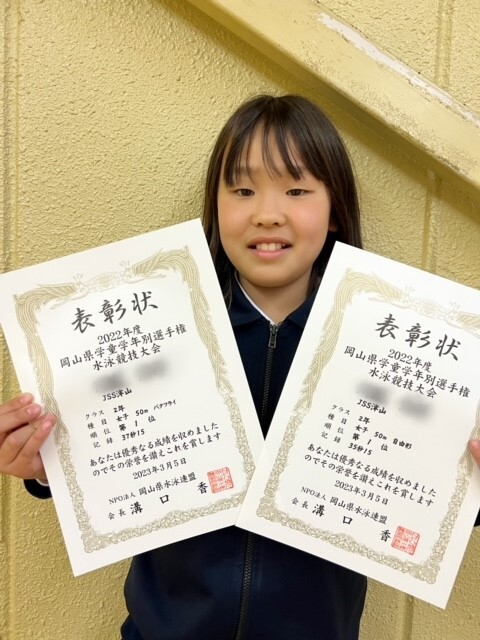 表彰状
2022年度
岡山県学童学年別選手権
水泳競技大会
JSS津山
クラス 2年
種目 女子 50m バタフライ
順位 第1位
記録 37秒15
あなたは優秀なる成績を収めました
のでその栄誉を讃えこれを賞します
2023年3月5日
NPO法人 岡山県水泳連盟
会長 溝口 香
表彰状
2022年度
岡山県学童学年別選手権
水泳競技大会
JSS津山
クラス 2年
種目 女子 50m 自由形
順位 第1位
記録 35秒15
あなたは優秀なる成績を収めました
のでその栄誉を讃えこれを賞します
2023年3月5日
NPO法人 岡山県水泳連盟
会長 溝口 香